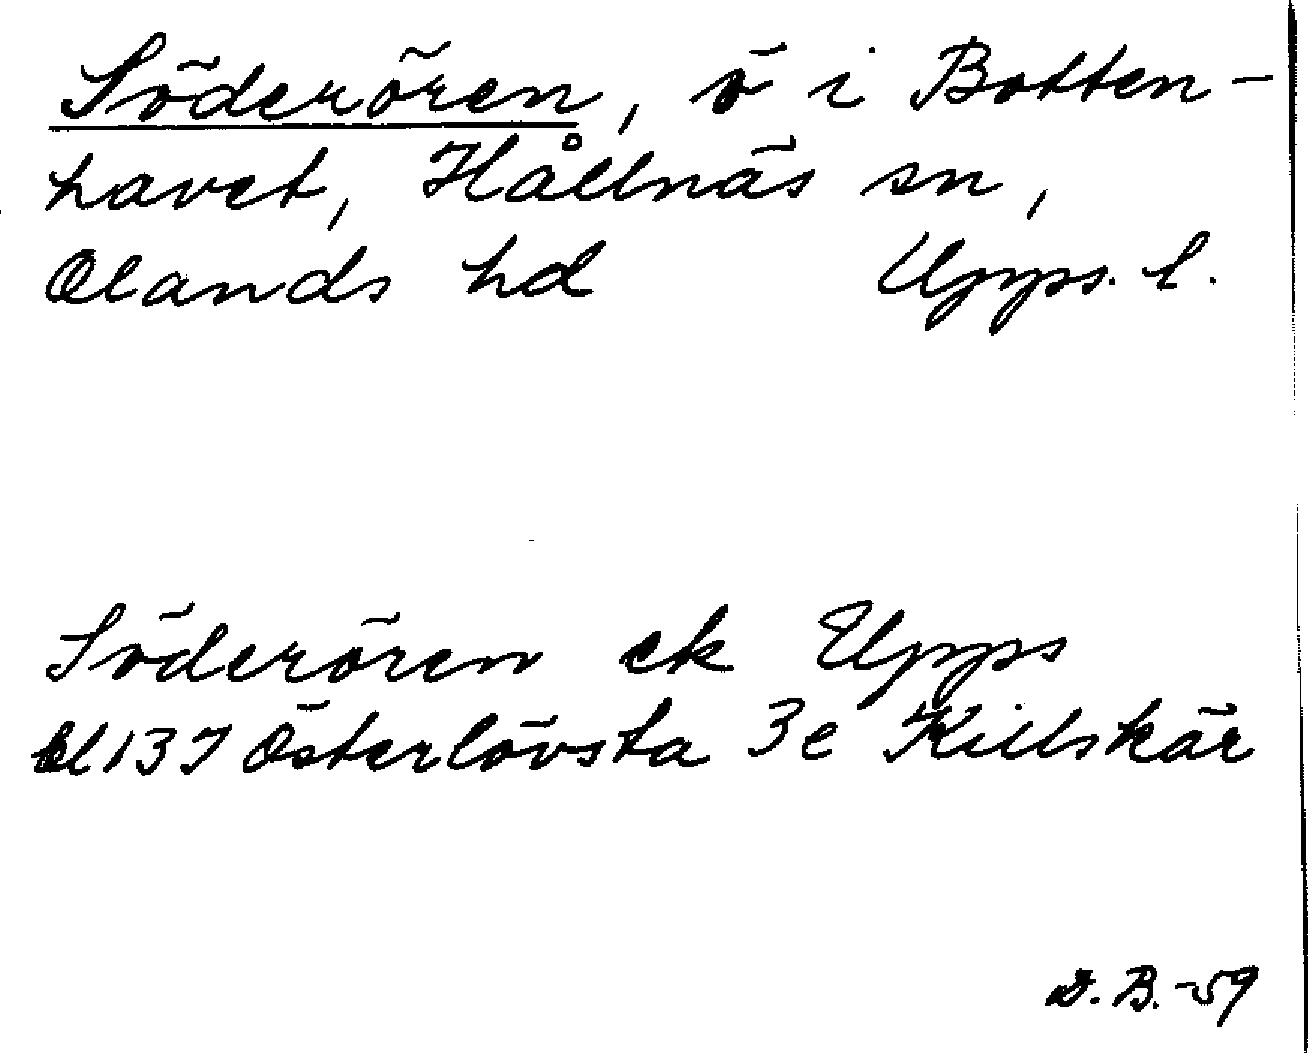 Söderören, ö i Botten-
havet, Hållnäs sn,
Olands hd Upps. l.
Söderören ek Upps
bl 137 Österlövsta 3e Killskär
D. B. -59